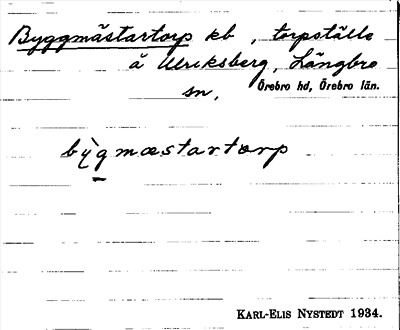 Byggmästartorp kb , torpställe
å Ulriksberg, Längbro
sn, Örebro hd, Örebro län.
bỳgmæstartorp
KARL-ELIS NYSTEDT 1934.